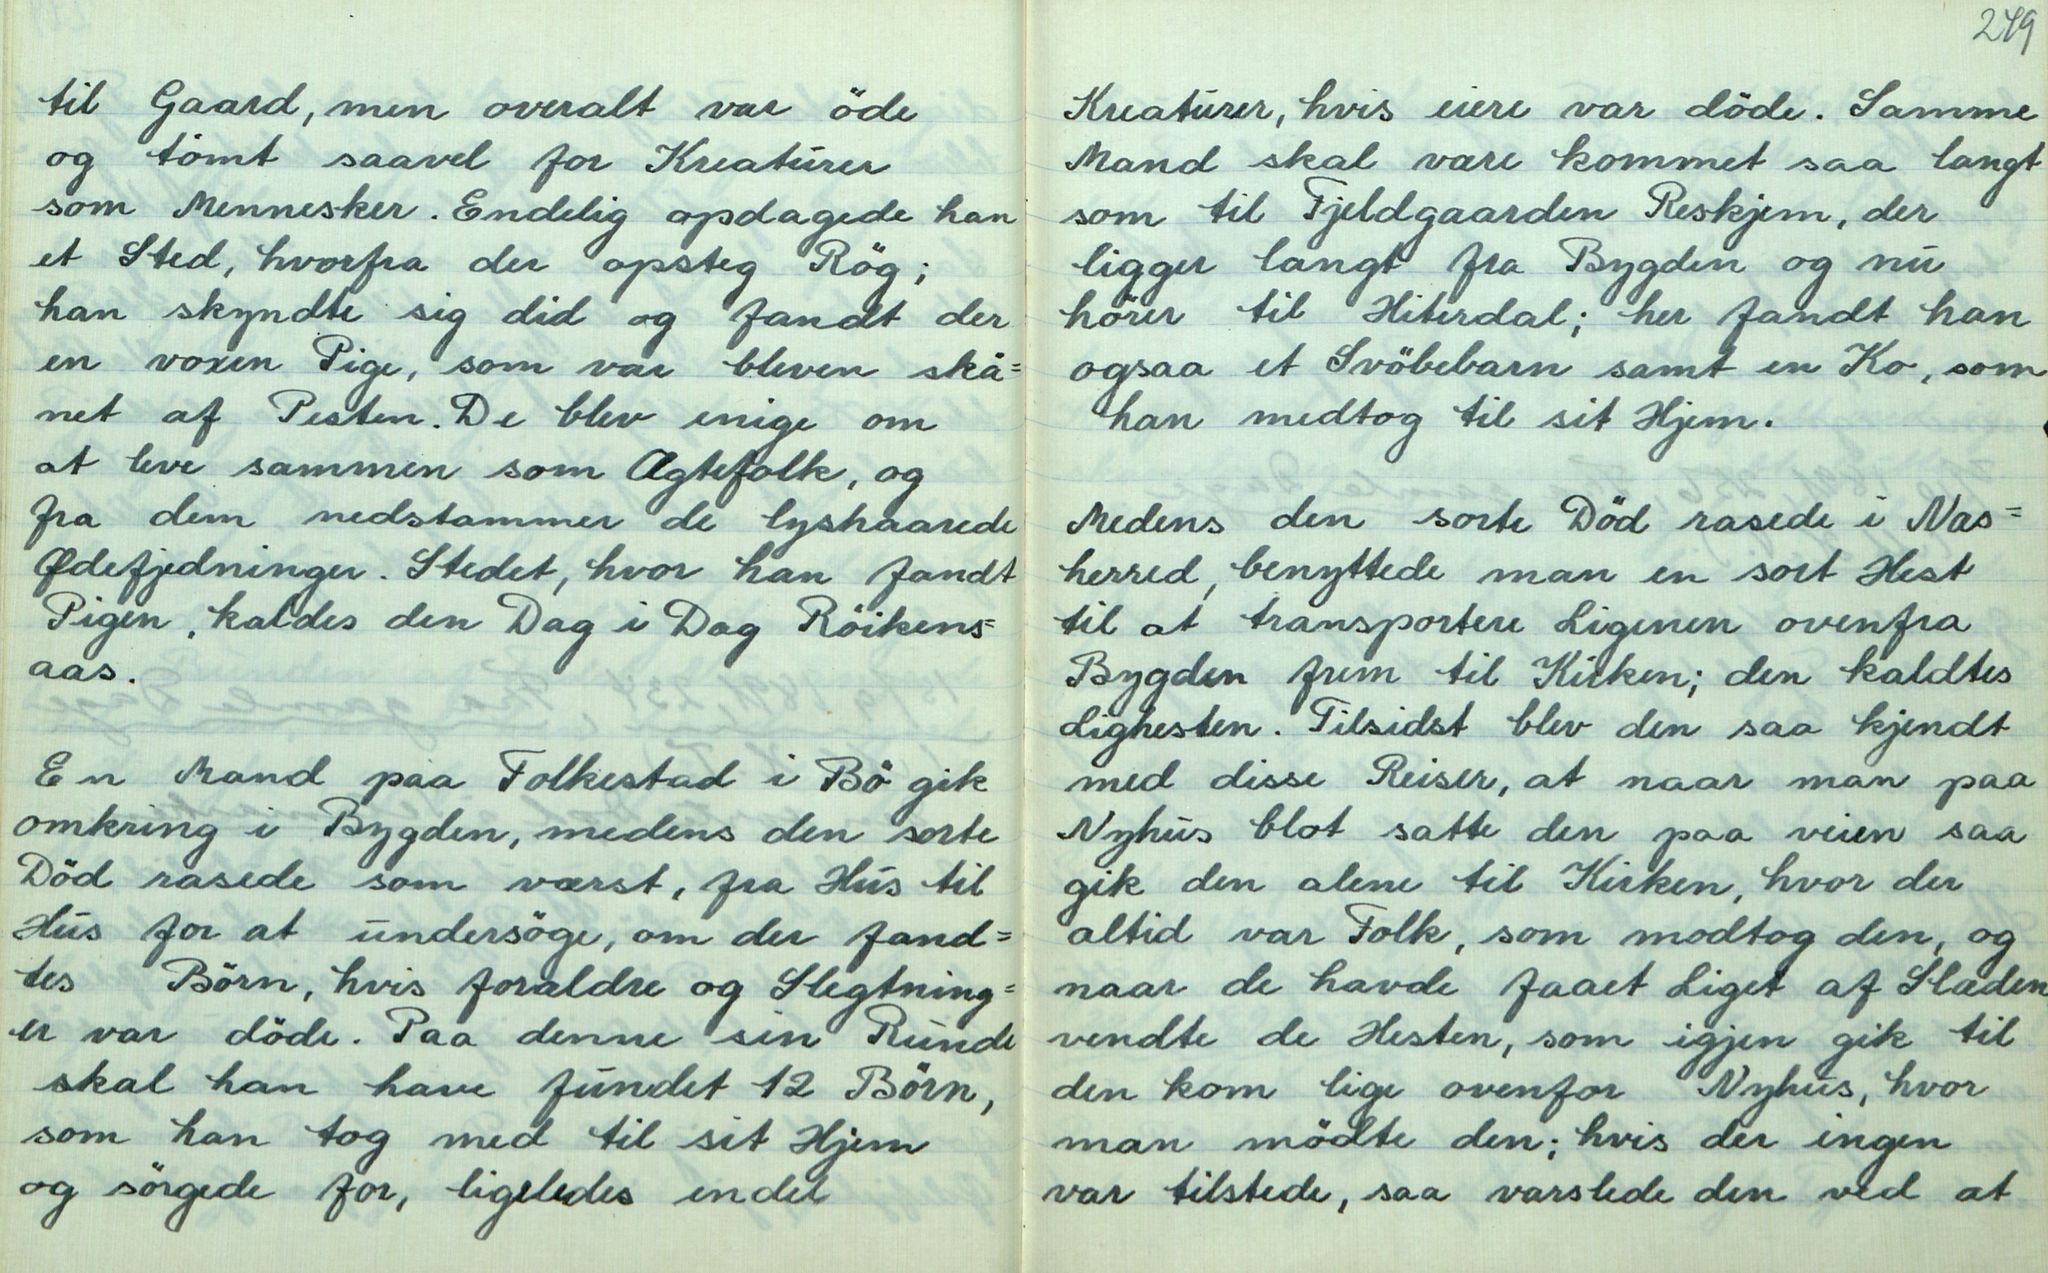 til Gaard, men overalt var öde
og tömt saavel for Kreaturer
som Mennesker. Endelig opdagede han
et Sted, hvorfra der opsteg Rög;
han skyndte sig did og fandt der
en voxen Pige, som var bleven skå=
net af Pesten. De blev enige om
at leve sammen som Ægtefolk, og
fra dem nedstammer de lyshaarede
Ødefjedninger. Stedet, hvor han fandt
Pigen, kaldes den Dag i Dag Röikens=
aas.
En Mand paa Folkestad i Bö gik
omkring i Bygden, medens den sorte
Död rasede som værst, fra Hus til
Hus for at undersöge, om der fand=
tes Börn, hvis foraldre og Slegtning=
er var döde. Paa denne sin Runde
skal han have fundet 12 Börn,
som han tog med til sit Hjem
og sörgede for, ligeledes endel
249
Kreaturer, hvis eiere var döde. Samme
Mand skal være kommet saa langt
som til Fjeldgaarden Reskjem, der
ligger langt fra Bygden og nu
hörer til Hiterdal; her fandt han
ogsaa et Svöbebarn samt en Ko, som
han medtog til sit Hjem.
Medens den sorte Död rasede i Nas=
herred, benyttede man en sort Hest
til at transportere Ligenen ovenfra
Bygden frem til Kirken; den kaldtes
Lighesten. Tilsidst blev den saa kjendt
med disse Reiser, at naar man paa
Nyhus blot satte den paa veien saa
gik den alene til Kirken, hvor der
altid var Folk, som modtog den, og
naar de havde faaet Liget af Slæden
vendte de Hesten, som igjen gik til
den kom lige ovenfor Nyhus, hvor
man mödte den; hvis der ingen
var tilstede, saa varslede den ved at